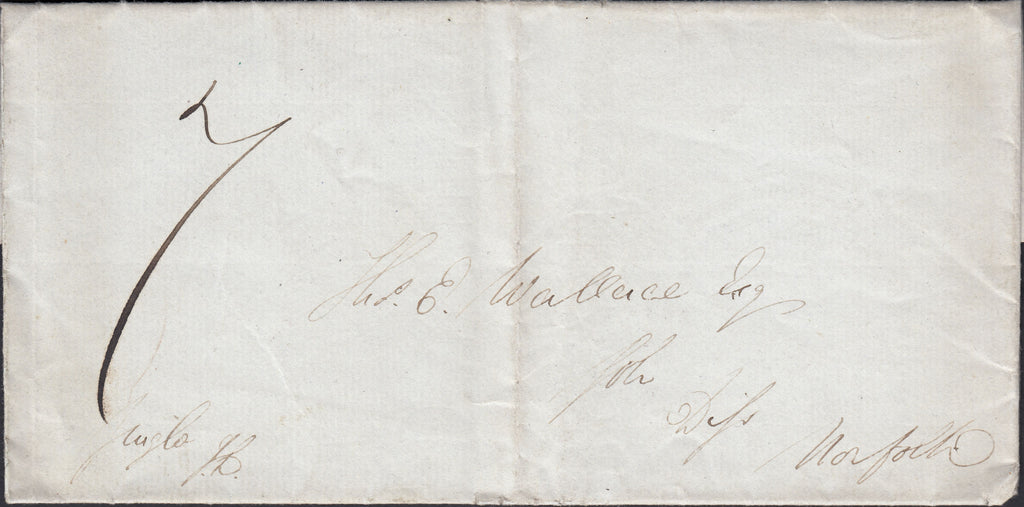 7
Thos. E. Wallace Esq
Solr
Diss
Norfolk
Single